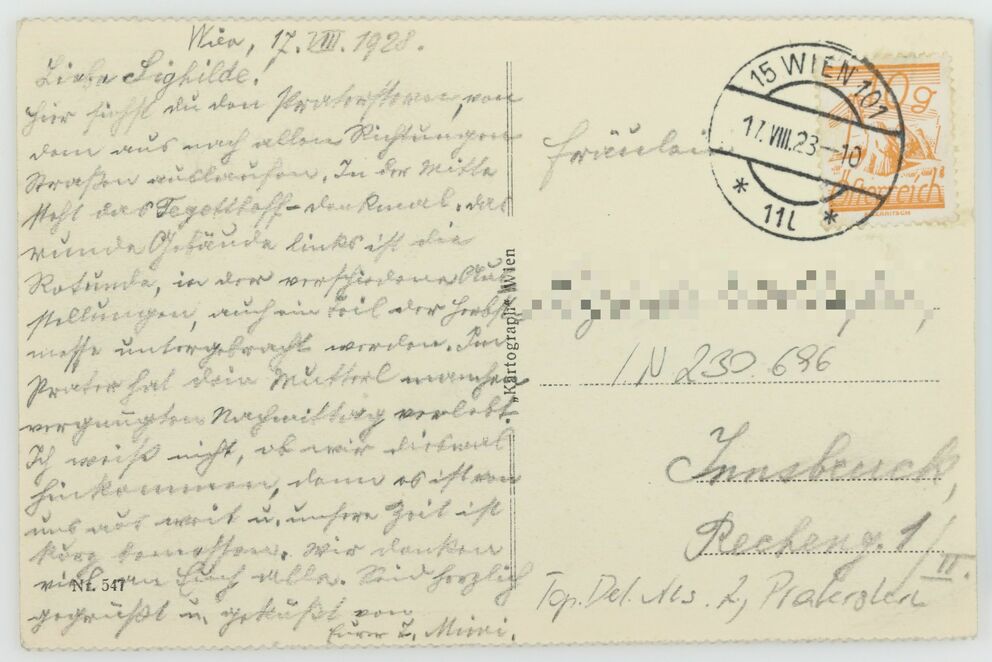 Wien, 17. VIII. 1928.
Liebe Sighilde!
Hier siehst du den Praterstern, von
dem aus nach allen Richtungen
Straßen auslaufen. In der Mitte
steht das Tegetthoff-denkmal. das
runde Gebäude links ist die
Rotunde, in der verschiedene Aus-
stellungen, auch ein teil der Herbst-
messe untergebracht werden. Im
Prater hat dein Mutterl manchen
vergnügten Nachmittag verlebt.
Ich weiß nicht, ob wir diesmal
hinkommen, denn es ist von
uns aus weit u. unsere Zeit ist
kurz bemessen. Wir denken
viel an Euch alle. Seid herzlich
gegrüßt u. geküßt von
Eurer T. Mimi.
Nr. 547
„Kartographi Wien
15 WIEN 101
17. VIII. 23-10
* 11L *
10g
Österreich
Fräulein
IN 230.696
Innsbruck,
Recheng. 1/II.
Top. Del. Nls. 2, Praterstern